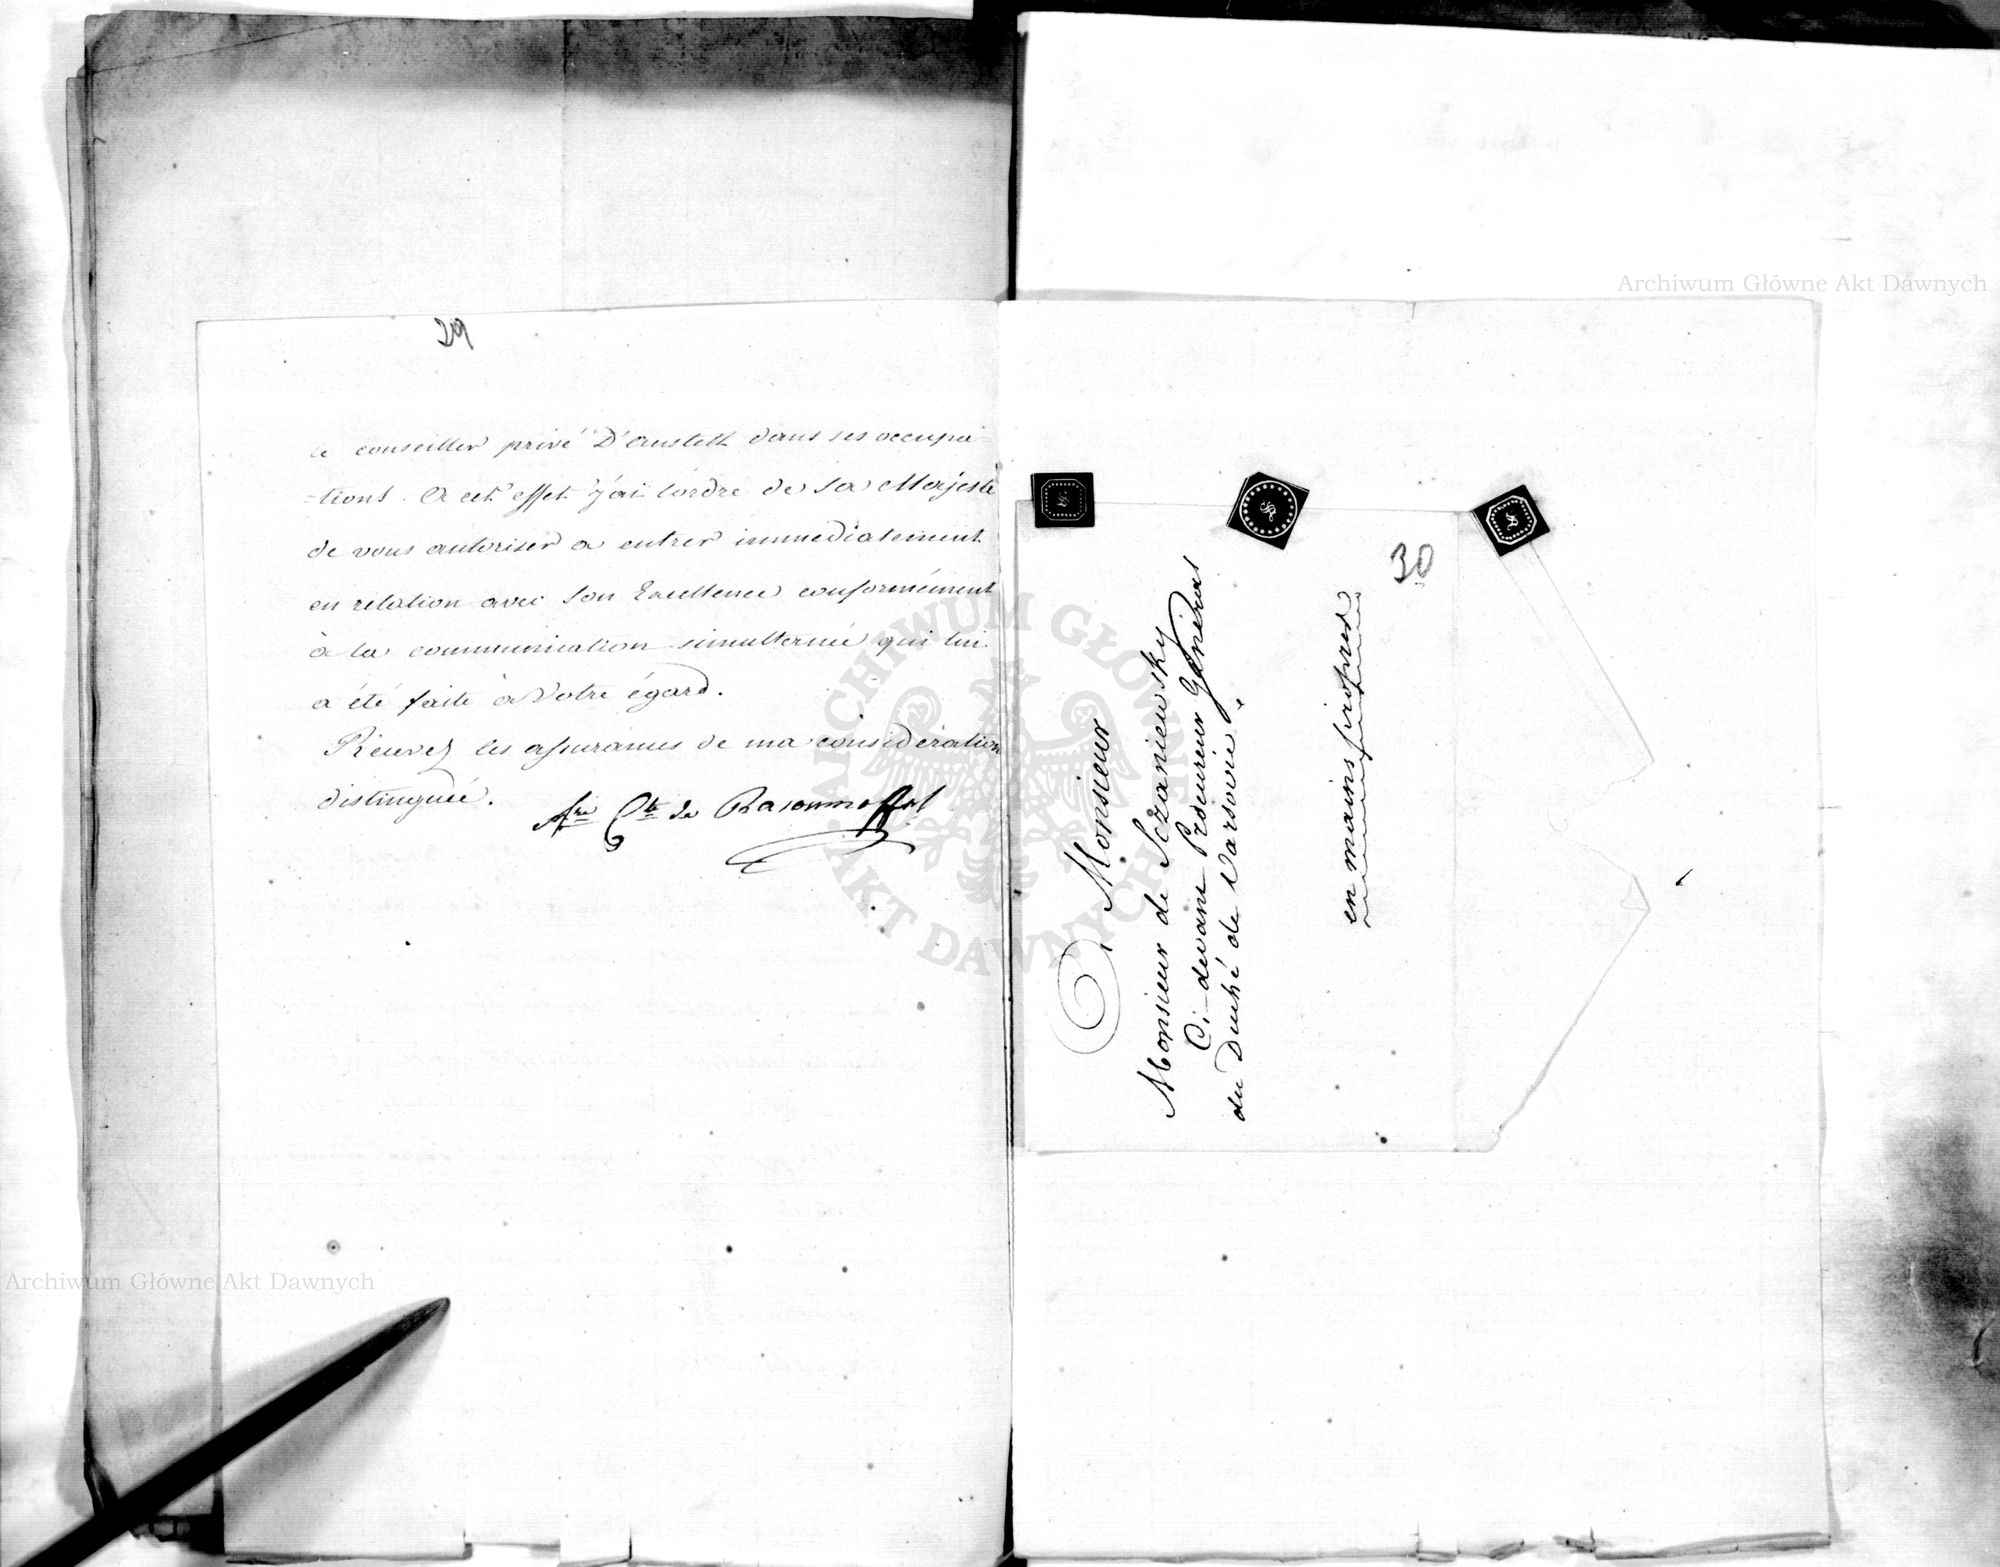 29
ce conseiller privé D'Anstett dans ses occupa
=tions. A cet effet j'ai l'ordre de Sa Majesté
de vous autoriser a entrer immediatement
en relation avec Son Excellence conformément
à la communication simultanée qui lui
a été faite à Votre égard.
Recevez les assurances de ma considération
distinguée.
Cte de Rasoumoffsky
30
A Monsieur
Monsieur de Sczaniewsky
Ci-devant Procureur Général
du Duché de Varsovie.
en mains propres
Archiwum Główne Akt Dawnych
Archiwum Główne Akt Dawnych
ARCHIWUM GŁÓWNE AKT DAWNYCH